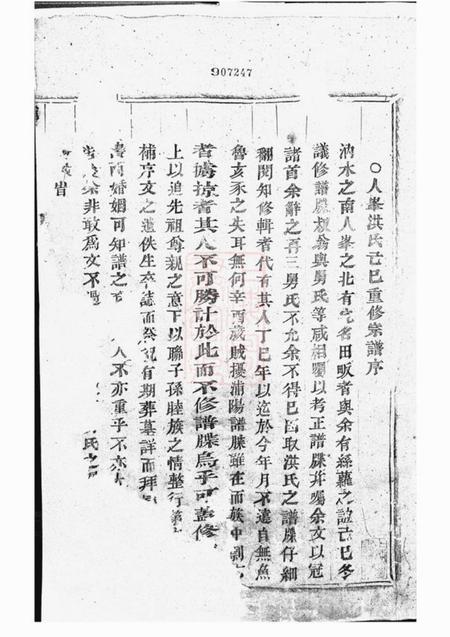 907247
○人峯洪氏己巳重修宗譜序
汭水之南人峯之北有宅名田畈者與余有絲蘿之誼己巳冬
議修譜牒　翁與舅氏等咸相囑以考正譜牒并囑余文以冠
諸首余辭之再三舅氏不允余不得已因取洪氏之譜牒仔細
翻閱知修輯者代有其人丁巳年以迄於今年月不遠自無魚
魯亥豕之失耳無何辛酉歲賊擾浦陽譜牒雖在而族中
者擄掠者其人不可勝計於此而不修譜牒烏乎可蓋修
上以追先祖母親之意下以聯子孫睦族之情整行
補序文之遺佚生卒誌而祭祝有期葬墓詳而拜
書而婚姻可知譜之　人不亦重乎不
余非敢爲文不　氏之
冑